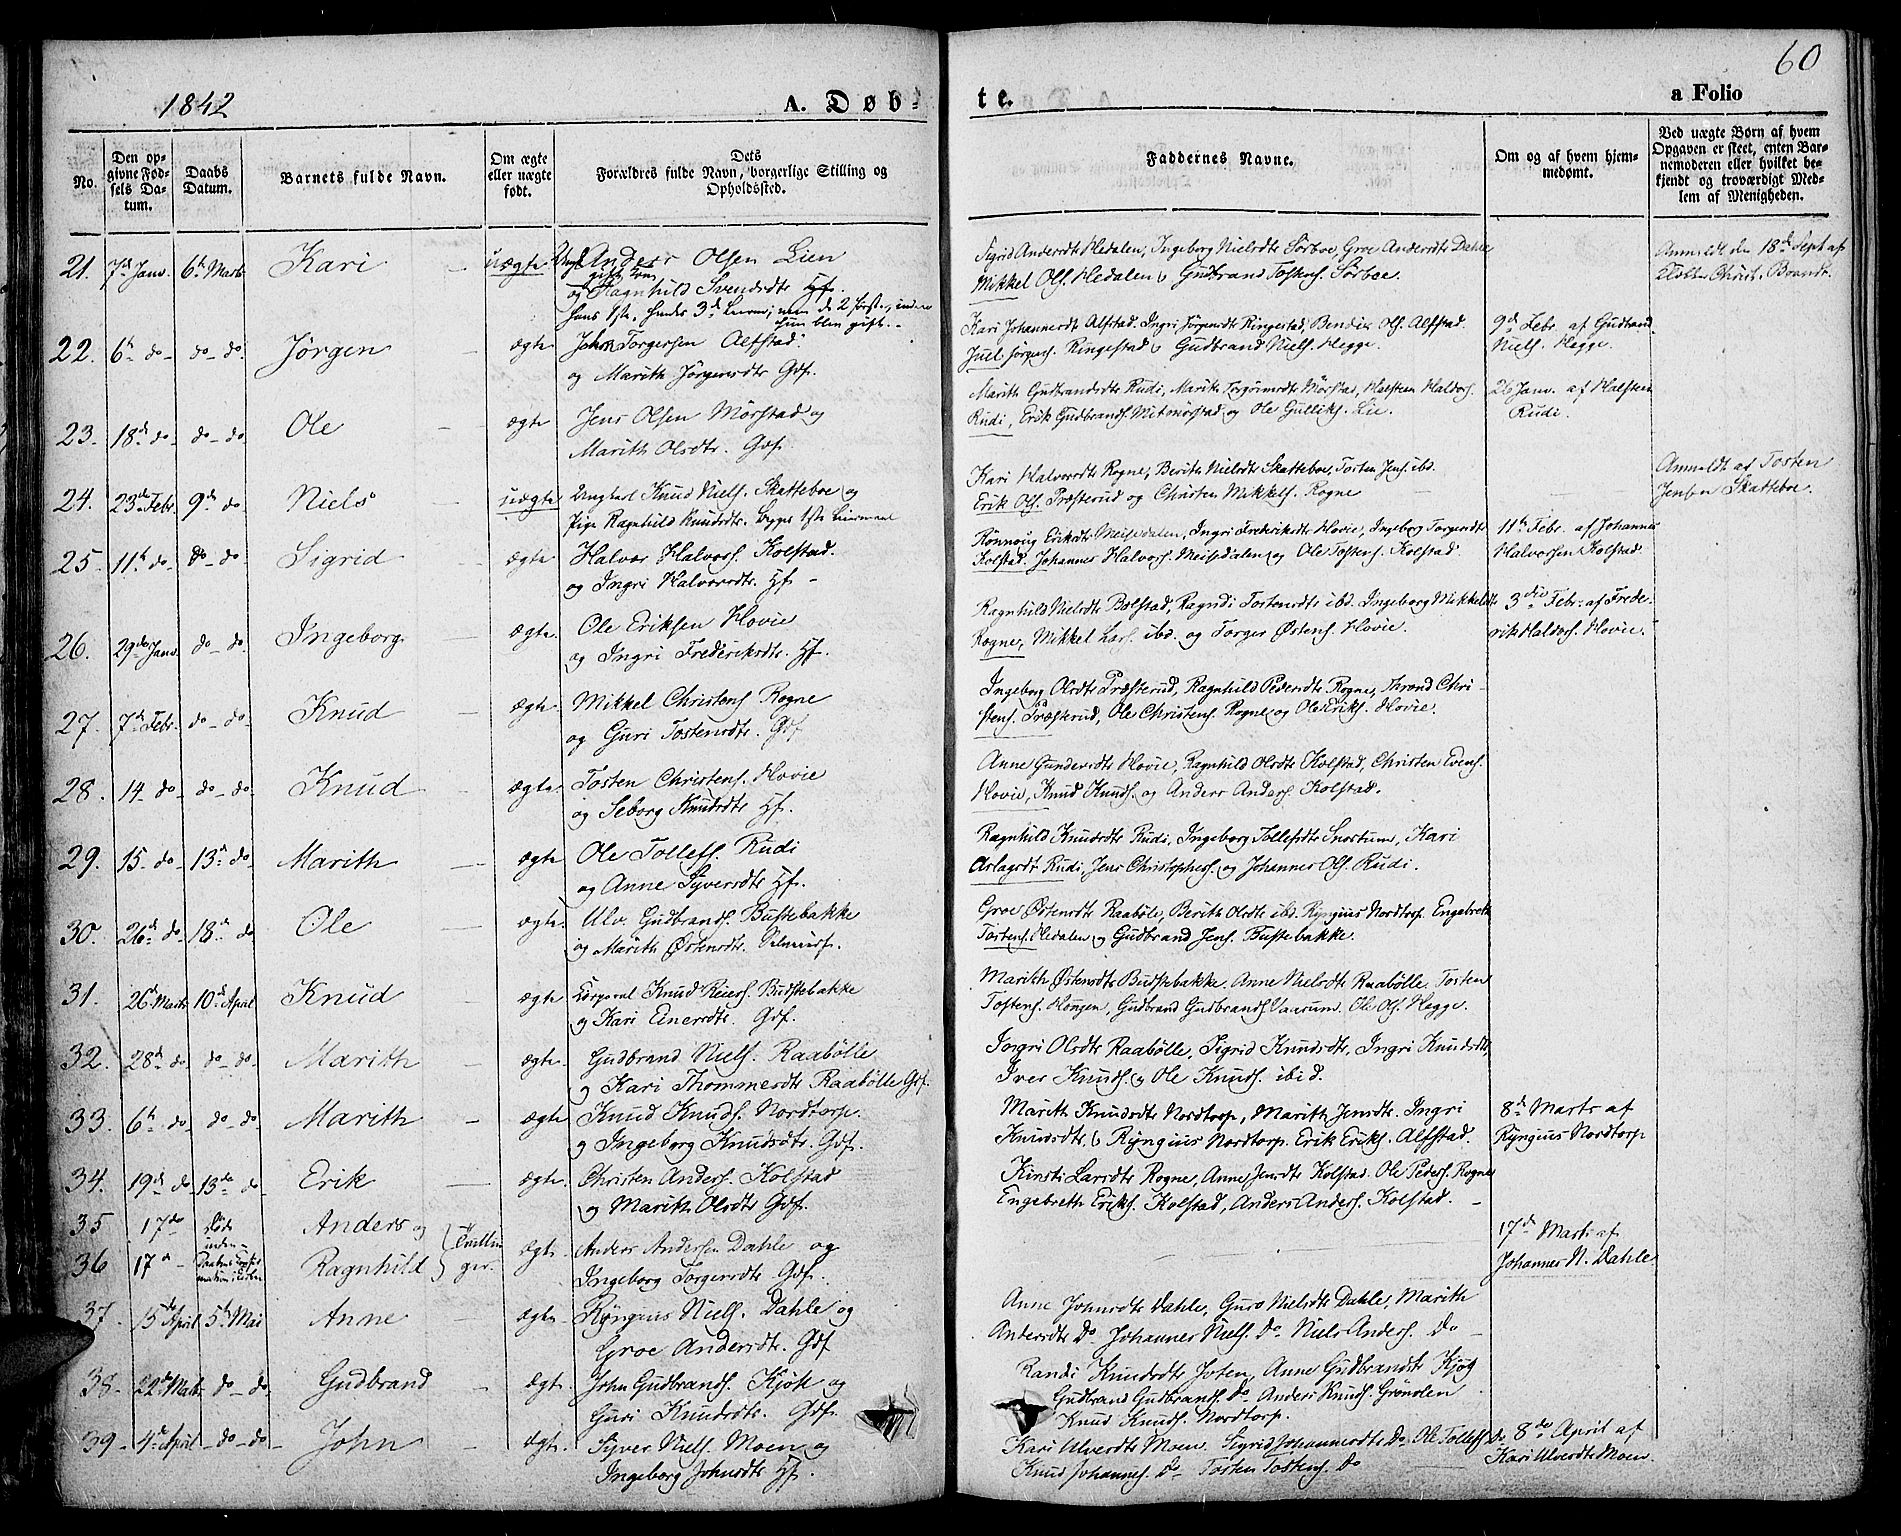 1842
A. Døb-
te.
a Folio
60
No.
Den op-
givne Fød-
sels Da-
tum.
Daabs
Datum.
Barnets fulde Navn.
Om ægte
eller uægte
født.
Dets
Forældres fulde Navn, borgerlige Stilling og
Opholdssted.
Faddernes Navne.
Om og af hvem hjem-
medømt.
Ved uægte Børn af hvem
Opgaven er skeet, enten Bar-
nemoderen eller hvilket be-
kjendt og troværdigt Med-
lem af Menigheden.
21. 7d Janv. 6t Marts Kari – uægte Anders Olsen Lien
og Ragnhild Svendsdtr Hf.
hans 1ste, hendes 3d Leierm;
hun blev gift.
Sigrid Andersdtr Hedalen, Ingeborg Nielsdtr Sörboe, Groe Andersdtr Dahle
Mikkel Ols. Hedalen og Gudbrand Tostens. Sörboe.
Anmeldt den 18de Sept af
Christ. Brandt.
22. 6t do do do Jörgen – ægte John Torgersen Alfstad
og Marith Jörgensdtr Gdf.
Kari Johannesdt Alfstad. Ingri Jörgensdt Ringestad, Bendix Ols. Alfstad.
Juel Jörgens. Ringestad og Gudbrand Niels. Hegge.
9d Febr. af Gudbrand
Niels. Hegge.
23. 18d do do do Ole – ægte Jens Olsen Mörstad og
Marith Olsdtr. Gdf.
Marith Gudbrandsdtr Rudi, Marith Mörstad, Halsteen Haldors.
Rudi, Erik Gudbrands. Mitmörstad og Ole Gulliks. Lie.
26 Janv. af Halsteen
Rudi.
24. 23de Febr. 9d do Niels – uægte Ungkarl Knud Niels. Skatteboe og
Pige Ragnhild Knudsdtr. Begges 1ste Leiermaal
Kari Halvorsdt Rogne, Berith Nielsdtr Skatteboe, Tosten Jens. ibd.
Erik Ols. Præsterud og Christen Mikkels. Rogne
Anmeldt af Tosten
Jensen Skatteboe.
25. 11t do do do Sigrid – ægte Halvor Halvors. Kolstad.
og Ingri Halvorsdt. Hf.
Rönnoug Eriksdt Meisedalen, Ingri Frederiksdt Hovie, Ingeborg Torgersdt
Kolstad. Johannes Halvors. Meisedalen og Ole Tostens. Kolstad.
11t Febr. af Johannes
Halvorsen Kolstad.
26. 29de Janv. do do Ingeborg. – ægte. Ole Eriksen Hovie
og Ingri Frederiksdtr. Hf.
Ragnhild Nielsdt Bolstad, Ragndi Tostensdtr ibd. Ingeborg Mikkelsdtr
Rogne, Mikkel Lars. ibd. og Torger Östens. Hovie.
3die Febr. af Frede-
rik Haldors. Hovie.
27. 7de Febr. do do Knud – ægte Mikkel Christens. Rogne
og Guri Tostensdtr. Gdf
Ingeborg Olsdtr Præsterud, Ragnhild Pedersdt Rogne, Thrond Chri-
stens. Præsterud, Ole Christens. Rogne og Ole Eriks. Hovie.
28. 14 do do do Knud – ægte. Tosten Christens. Hovie
og Seborg Knudsdtr Hf.
Anne Gundersdt Hovie, Ragnhild Olsdt Kolstad, Christen Evens.
Hovie, Knud Knuds. og Anders Anders. Kolstad.
29. 15 do 13d do Marith – ægte Ole Tollefs. Rudi
og Anne Syversdtr Hf.
Ragnhild Knudsdtr Rudi, Ingeborg Tollefsdt Snortum, Kari
Aslagsdt Rudi, Jens Christophers. og Johannes Ols. Rudi.
30. 26d do 18d do Ole – ægte. Ulv. Gudbrands. Bustebakke
og Marith Östensdtr.
Groe Östensdt Raaböle, Berith Olsdt ibd. Ryngius Nordtorp. Engebreth
Tostens. Hedalen og Gudbrand Jens. Bustebakke.
31. 26d Marts 10d April Knud – ægte Corporal Knud Reiers. Budstebakke
og Kari Einersdtr. Gdf.
Marith Östensdt Budstebakke. Anne Nielsdt Raabölle. Tosten
Tostens. Hougen, Gudbrand Gudbrands. Vaarum. Ole Ols. Hegge.
32. 28d do do do Marith – ægte. Gudbrand Niels. Raabölle
og Kari Thommesdt Raabölle Gdf.
Ingri Olsdtr Raabölle, Sigrid Knudsdt. Ingri Knudsdt,
Iver Knuds. og Ole Knuds. ibid.
33. 6t do do do Marith – ægte Knud Knuds. Nordtorp.
og Ingeborg Knudsdtr. Gdf.
Marith Knudsdt Nordtorp, Marith Jensdt. Ingri
Knudsdtr. og Ryngius Nordtorp. Erik Eriks. Alfstad.
8d Marts af
Ryngius Nordtorp
34. 19d do 13de do Erik – ægte. Christen Anders. Kolstad
og Marith Olsdt Gdf.
Kirsti Larsdt Rogne, Anne Jensdt Kolstad. Ole Peders. Rogne
Engebreth Eriks. Kolstad, Anders Anders. Kolstad.
35 17do döde Anders og Tvillin
36 17d inden Ragnhild ger. ægte. Anders Andersen Dahle og
Ingeborg Torgersdt. Gdf.
17d Marts af
Johannes N. Dahle
37. 15de April 5t Mai Anne – ægte Ryngius Niels. Dahle og
Groe Andersdt. Gdf
Anne Johnsdt Dahle, Guro Nielsdt Dahle, Marith
Andersdtr do Johannes Niels. do Niels Anders. do
38 22d Marts do do Gudbrand – ægte. John Gudbrands. Kjök og
Guri Knudsdtr. Gdf.
Randi Knudsdt Joten, Anne Gudbrandsdt Kjög
Gudbrand Gudbrands. do Anders Knuds. Grönolen
Knud Knuds. Nordtorp.
39 4d April do do John – ægte. Syver Niels. Moen og
Ingeborg Johnsdt Hf.
Kari Ulversdt Moen. Sigrid Johannesdt do Ole Tollefs do
Knud Johannes. do Tosten Tostens. do
8do April af
Kari Ulversdt Moen.